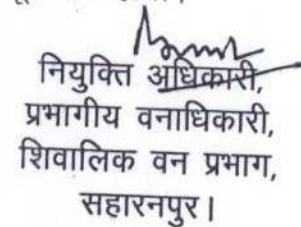 नियुक्ति अधिकारी,
प्रभागीय वनाधिकारी,
शिवालिक वन प्रभाग,
सहारनपुर।